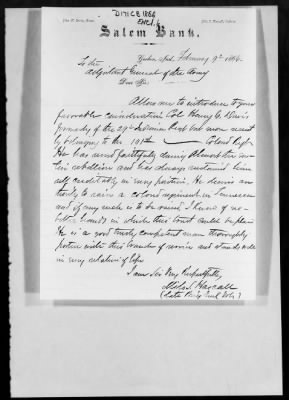 D 171 C E 1866
ENCL
Salem Bank.
Goshen, Ind. February 9th 1866.
To the
Adjutant General of the Army
Dear Sir,
Allow me to introduce to your
favorable consideration Col Henry G. Davis
formerly of the 29th Indiana but more recent
ly belonging to the 101st Colored Regt.
He has served faithfully during almost the en
tire rebellion and has always sustained him
self creditably in every position. He desires au
thority to raise a colored regiment in Tennessee
and if any such is to be raised, I know of no
better hands in which this trust could be placed
He is a good trusty, competent man thoroughly
posted with this branch of service and stands well
in every relation of life.
I am Sir Very Respectfully,
Milo S. Hascall
(Late Brig Genl Vols.)